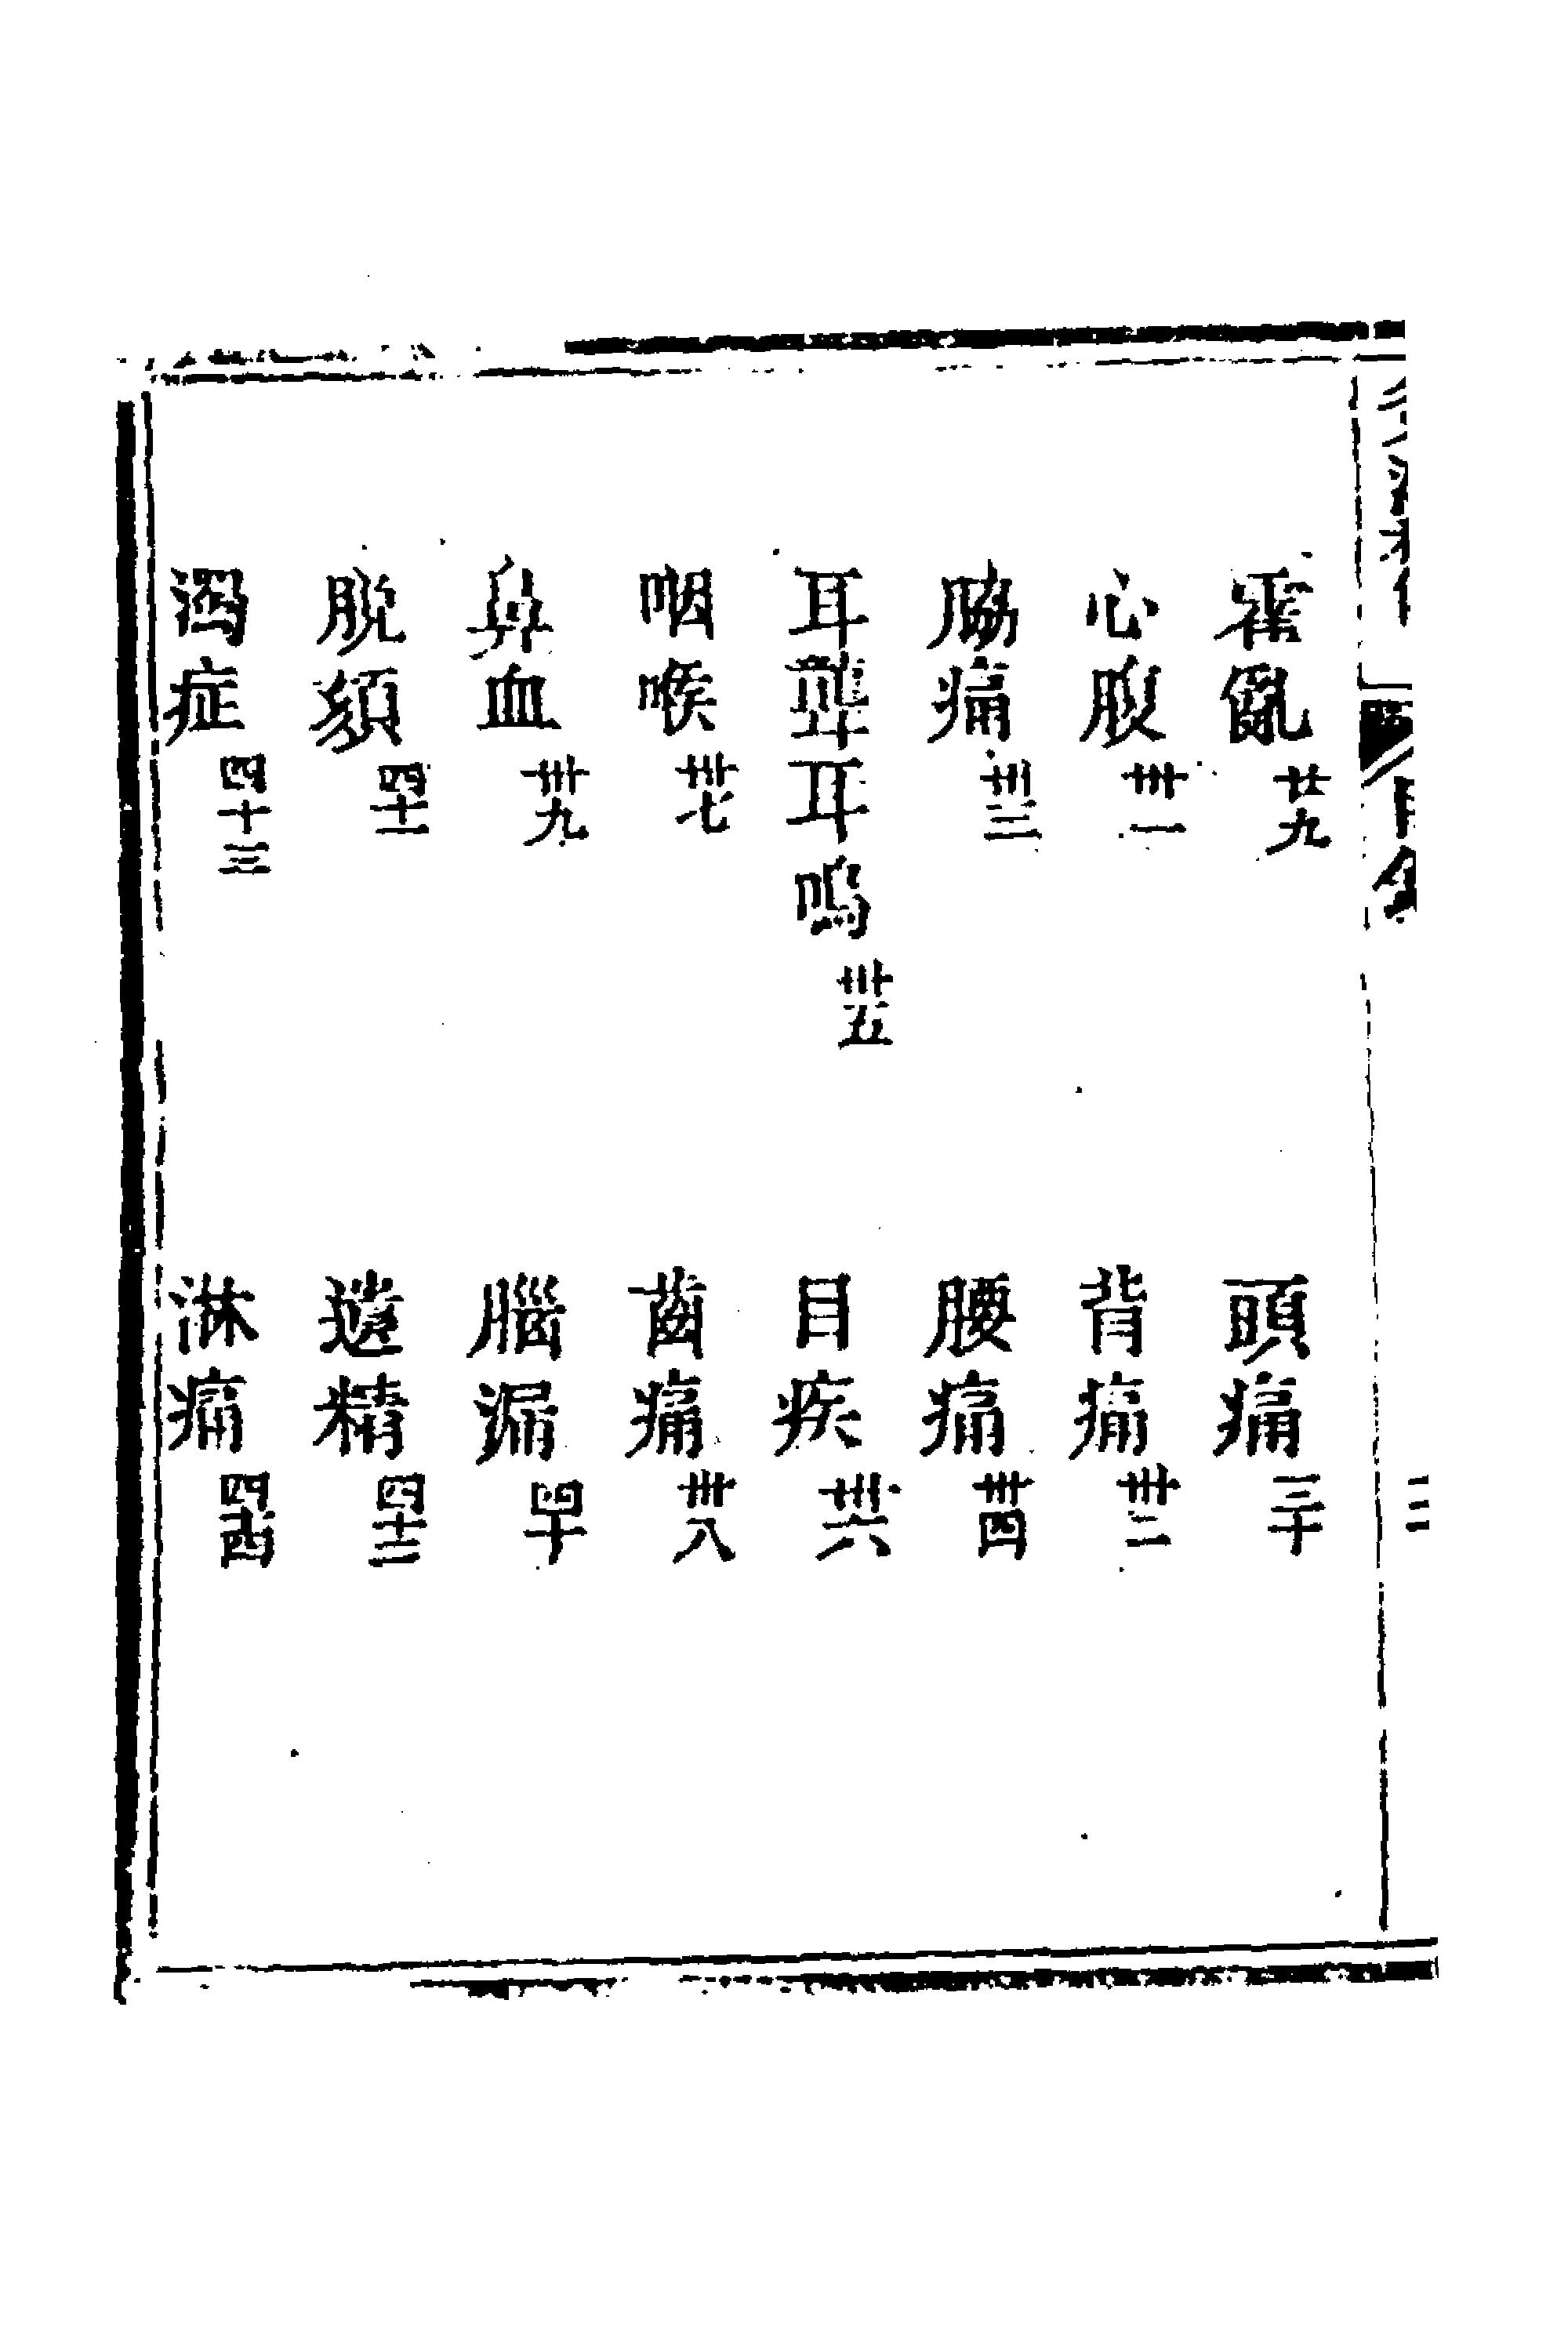 霍亂廿九　頭痛三十
心腹卅一　背痛卅二
脇痛卅三　腰痛卅四
耳聾耳鳴卅五　目疾卅六
咽喉卅七　齒痛卅八
鼻血卅九　腦漏四十
脫頦四十一　遺精四十二
濁症四十三　淋痛四十四